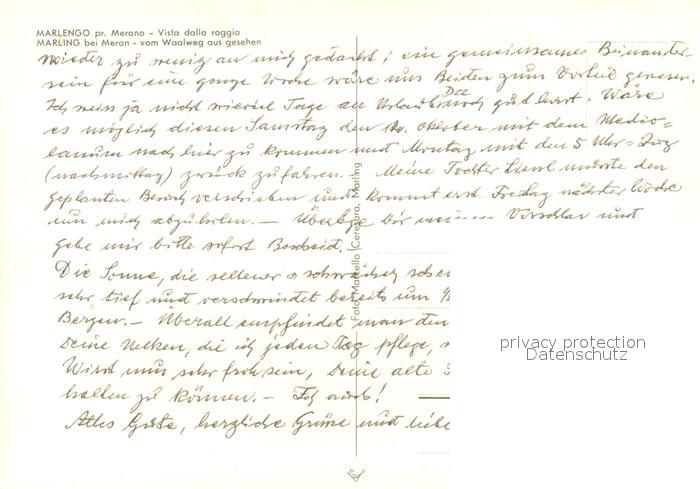 MARLENGO pr. Merano - Vista dalla roggia
MARLING bei Meran - vom Waalweg aus gesehen
wieder zu wenig an mich gedacht; ein gemeinsames Beinander-
sein für eine ganze Woche wäre uns Beiden zum Vorteil gewesen.
Ich weiss ja nicht wieviel Tage an Urlaub Du noch gut hast. Wäre
es möglich diesen Samstag den 10. Oktober mit dem Medio-
lanum nach hier zu kommen und Montag mit den 5 Uhr-Zug
(nachmittag) zurück zu fahren. — Meine Tochter Liesel musste den
geplanten Besuch verschieben und kommt erst Freitag nächster Woche
um mich abzuholen. — Überlege Dir meinen Vorschlag und
gebe mir bitte sofort Bescheid.
Die Sonne, die seltener
sehr tief und verschwindet bereits um
Bergen. — Überall empfindet man den
Deine Nelken, die ich jeden Tag pflege,
Wirst nun sehr froh sein, Deine alte
halten zu können. — Ich auch!
Alles Gute, herzliche Grüsse und liebe
Foto Martello (Cerebara, Marling
privacy protection
Datenschutz